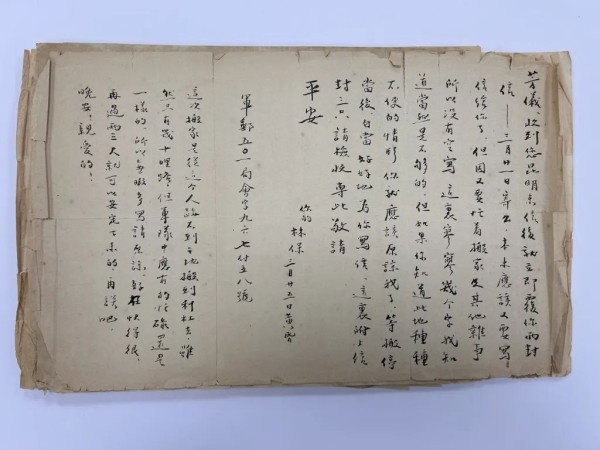 芳儀：收到您昆明来信後，就立即覆你兩封
信——三月廿一日寄出，本来應該又要寫
信给你了，但因又要忙着搬家及其他雜事
所以没有空寫，這裏寥寥幾个字我知
道當然是不够的，但如果你知道此地種種
不便的情形你就應該原諒我了，等搬停
當後，自當好好地为你寫信，這裏附上信
封三只，請檢收，專此敬請
平安
你的林保
三月廿五日黄昏
軍郵五〇一局會字九六七付五八號
這次搬家是從這个人跡不到之地搬到村莊去，雖
然只有幾十哩路，但軍隊中應有的忙碌還是
一樣的，所以無暇多寫請原諒，好在快得很，
再過兩三天就可以安定下来的，再談吧，
晚安，親爱的！